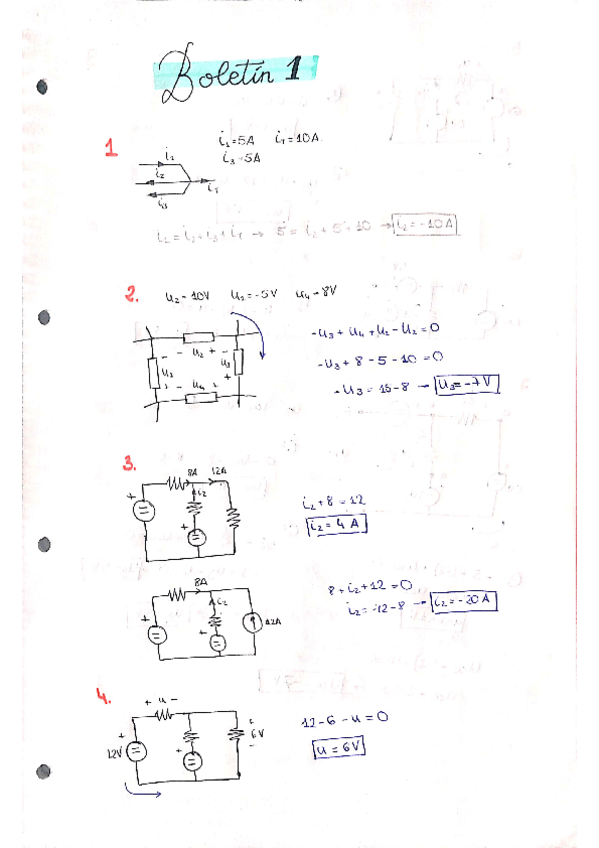 Boletín 1
1
i₁=5A i_T=10A
i₃=5A
i₁
i₂
i_T
i₃
i₁=i₂+i₃+i_T → 5=i₂+5+10 → i₂=-10A
2. U₂=10V U₁=-5V U₄=8V
- U₂ + -
U₁ U₃
- U₄ +
-U₃+U₄+U₁-U₂=0
-U₃+8-5-10=0
-U₃=15-8 → U₃=-7V
3.
8A 12A
i₂
+
+
i₂+8=12
i₂=4A
8A
i₂
+
+
12A
8+i₂+12=0
i₂=-12-8 → i₂=-20A
4.
+ u -
+
12V
+
+
6V
-
12-6-u=0
u=6V